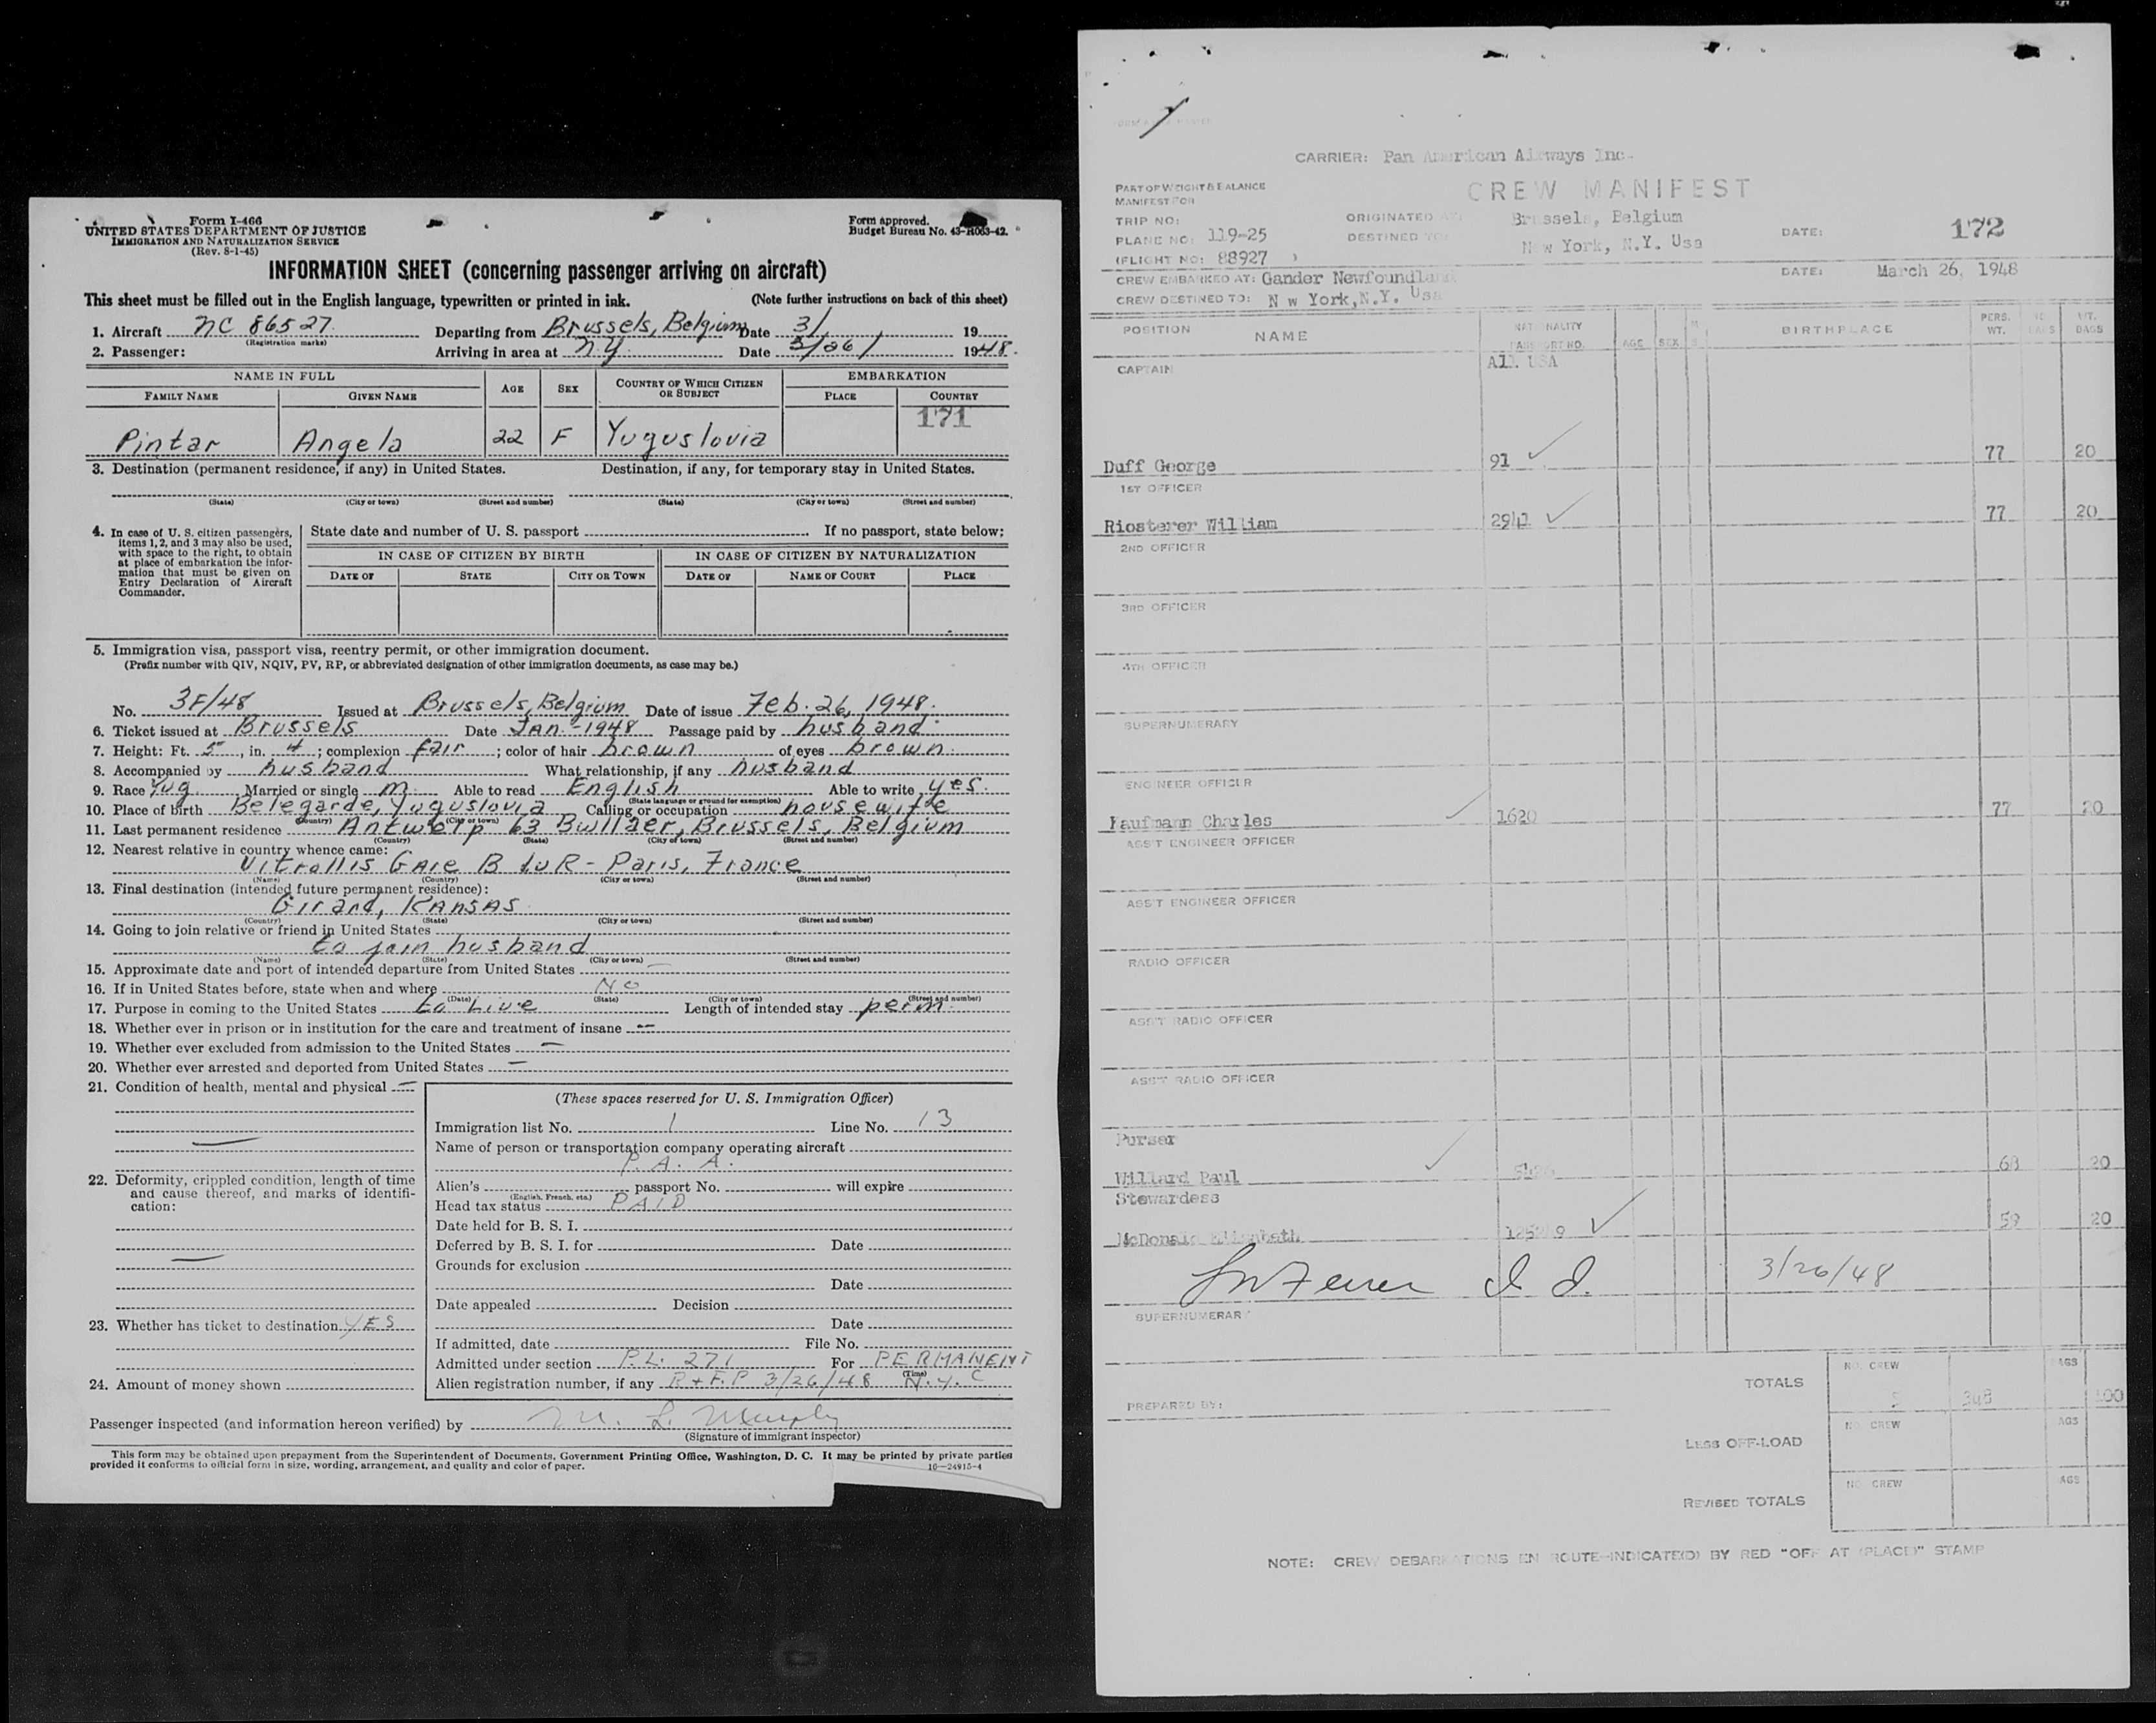 Form I-466
UNITED STATES DEPARTMENT OF JUSTICE
IMMIGRATION AND NATURALIZATION SERVICE
(Rev. 8-1-45)
Form approved.
Budget Bureau No. 43-R063-42.
INFORMATION SHEET (concerning passenger arriving on aircraft)
This sheet must be filled out in the English language, typewritten or printed in ink. (Note further instructions on back of this sheet)
1. Aircraft NC 86527 Departing from Brussels, Belgium Date 3/ 19
(Registration marks)
2. Passenger: Arriving in area at N.Y. Date 3/26/ 1948.
NAME IN FULL AGE SEX COUNTRY OF WHICH CITIZEN OR SUBJECT EMBARKATION
FAMILY NAME GIVEN NAME PLACE COUNTRY
171
Pintar Angela 22 F Yuguslovia
3. Destination (permanent residence, if any) in United States. Destination, if any, for temporary stay in United States.
(State) (City or town) (Street and number) (State) (City or town) (Street and number)
4. In case of U. S. citizen passengers, items 1, 2, and 3 may also be used, with space to the right, to obtain at place of embarkation the information that must be given on Entry Declaration of Aircraft Commander.
State date and number of U. S. passport If no passport, state below:
IN CASE OF CITIZEN BY BIRTH IN CASE OF CITIZEN BY NATURALIZATION
DATE OF STATE CITY OR TOWN DATE OF NAME OF COURT PLACE
5. Immigration visa, passport visa, reentry permit, or other immigration document.
(Prefix number with QIV, NQIV, PV, RP, or abbreviated designation of other immigration documents, as case may be.)
No. 3F/48 Issued at Brussels, Belgium Date of issue Feb. 26, 1948.
6. Ticket issued at Brussels Date JAN.-1948 Passage paid by husband
7. Height: Ft. 5, in. 4; complexion fair; color of hair brown of eyes brown.
8. Accompanied by husband What relationship, if any husband
9. Race Yug. Married or single m. Able to read English Able to write yes.
(State language or ground for exemption)
10. Place of birth Belegarde, Yuguslovia Calling or occupation housewife
(Country) (City or town)
11. Last permanent residence Antwelp 63 Bwillaer, Brussels, Belgium
(Country) (State) (City or town) (Street and number)
12. Nearest relative in country whence came:
Vitrollis GAre B luR - Paris, France
(Name) (Country) (City or town) (Street and number)
13. Final destination (intended future permanent residence):
Girard, KANSAS
(Country) (State) (City or town) (Street and number)
14. Going to join relative or friend in United States
to join husband
(Name) (State) (City or town) (Street and number)
15. Approximate date and port of intended departure from United States —
16. If in United States before, state when and where No
(Date) (State) (City or town) (Street and number)
17. Purpose in coming to the United States to Live Length of intended stay perm.
18. Whether ever in prison or in institution for the care and treatment of insane —
19. Whether ever excluded from admission to the United States —
20. Whether ever arrested and deported from United States —
21. Condition of health, mental and physical —
22. Deformity, crippled condition, length of time and cause thereof, and marks of identification:
23. Whether has ticket to destination YES
24. Amount of money shown
(These spaces reserved for U. S. Immigration Officer)
Immigration list No. 1 Line No. 13
Name of person or transportation company operating aircraft
P. A. A.
Alien's passport No. will expire
(English, French, etc.)
Head tax status PAID
Date held for B. S. I.
Deferred by B. S. I. for Date
Grounds for exclusion
Date
Date appealed Decision
Date
If admitted, date File No.
Admitted under section P.L. 271 For PERMANENT
(Time)
Alien registration number, if any R+F.P 3/26/48 N.Y.C
Passenger inspected (and information hereon verified) by M. L. Murphy
(Signature of immigrant inspector)
This form may be obtained upon prepayment from the Superintendent of Documents, Government Printing Office, Washington, D. C. It may be printed by private parties
provided it conforms to official form in size, wording, arrangement, and quality and color of paper. 16—24915-4
CARRIER: Pan American Airways Inc.
CREW MANIFEST
PART OF WEIGHT & BALANCE
MANIFEST FOR
TRIP NO: ORIGINATED AT: Brussels, Belgium
PLANE NO: 119-25 DESTINED TO: New York, N.Y. Usa DATE: 172
(FLIGHT NO: 88927 )
CREW EMBARKED AT: Gander Newfoundland DATE: March 26, 1948
CREW DESTINED TO: N w York, N.Y. Usa
POSITION NAME NATIONALITY PASSPORT NO. AGE SEX BIRTHPLACE PERS. WT. NO. BAGS WT. BAGS
CAPTAIN All USA
Duff George 91 77 20
1ST OFFICER
Riosterer William 2941 77 20
2ND OFFICER
3RD OFFICER
4TH OFFICER
SUPERNUMERARY
ENGINEER OFFICER
Kaufmann Charles 1620 77 20
ASS'T ENGINEER OFFICER
ASS'T ENGINEER OFFICER
RADIO OFFICER
ASS'T RADIO OFFICER
ASS'T RADIO OFFICER
Purser
Willard Paul 68 20
Stewardess
McDonald Elizabeth 59 20
3/26/48
SUPERNUMERARY
TOTALS NO. CREW 5 348 AGS 100
PREPARED BY:
LESS OFF-LOAD NO. CREW AGS
REVISED TOTALS NO. CREW AGS
NOTE: CREW DEBARKATIONS EN ROUTE—INDICATE(D) BY RED "OFF AT (PLACE)" STAMP